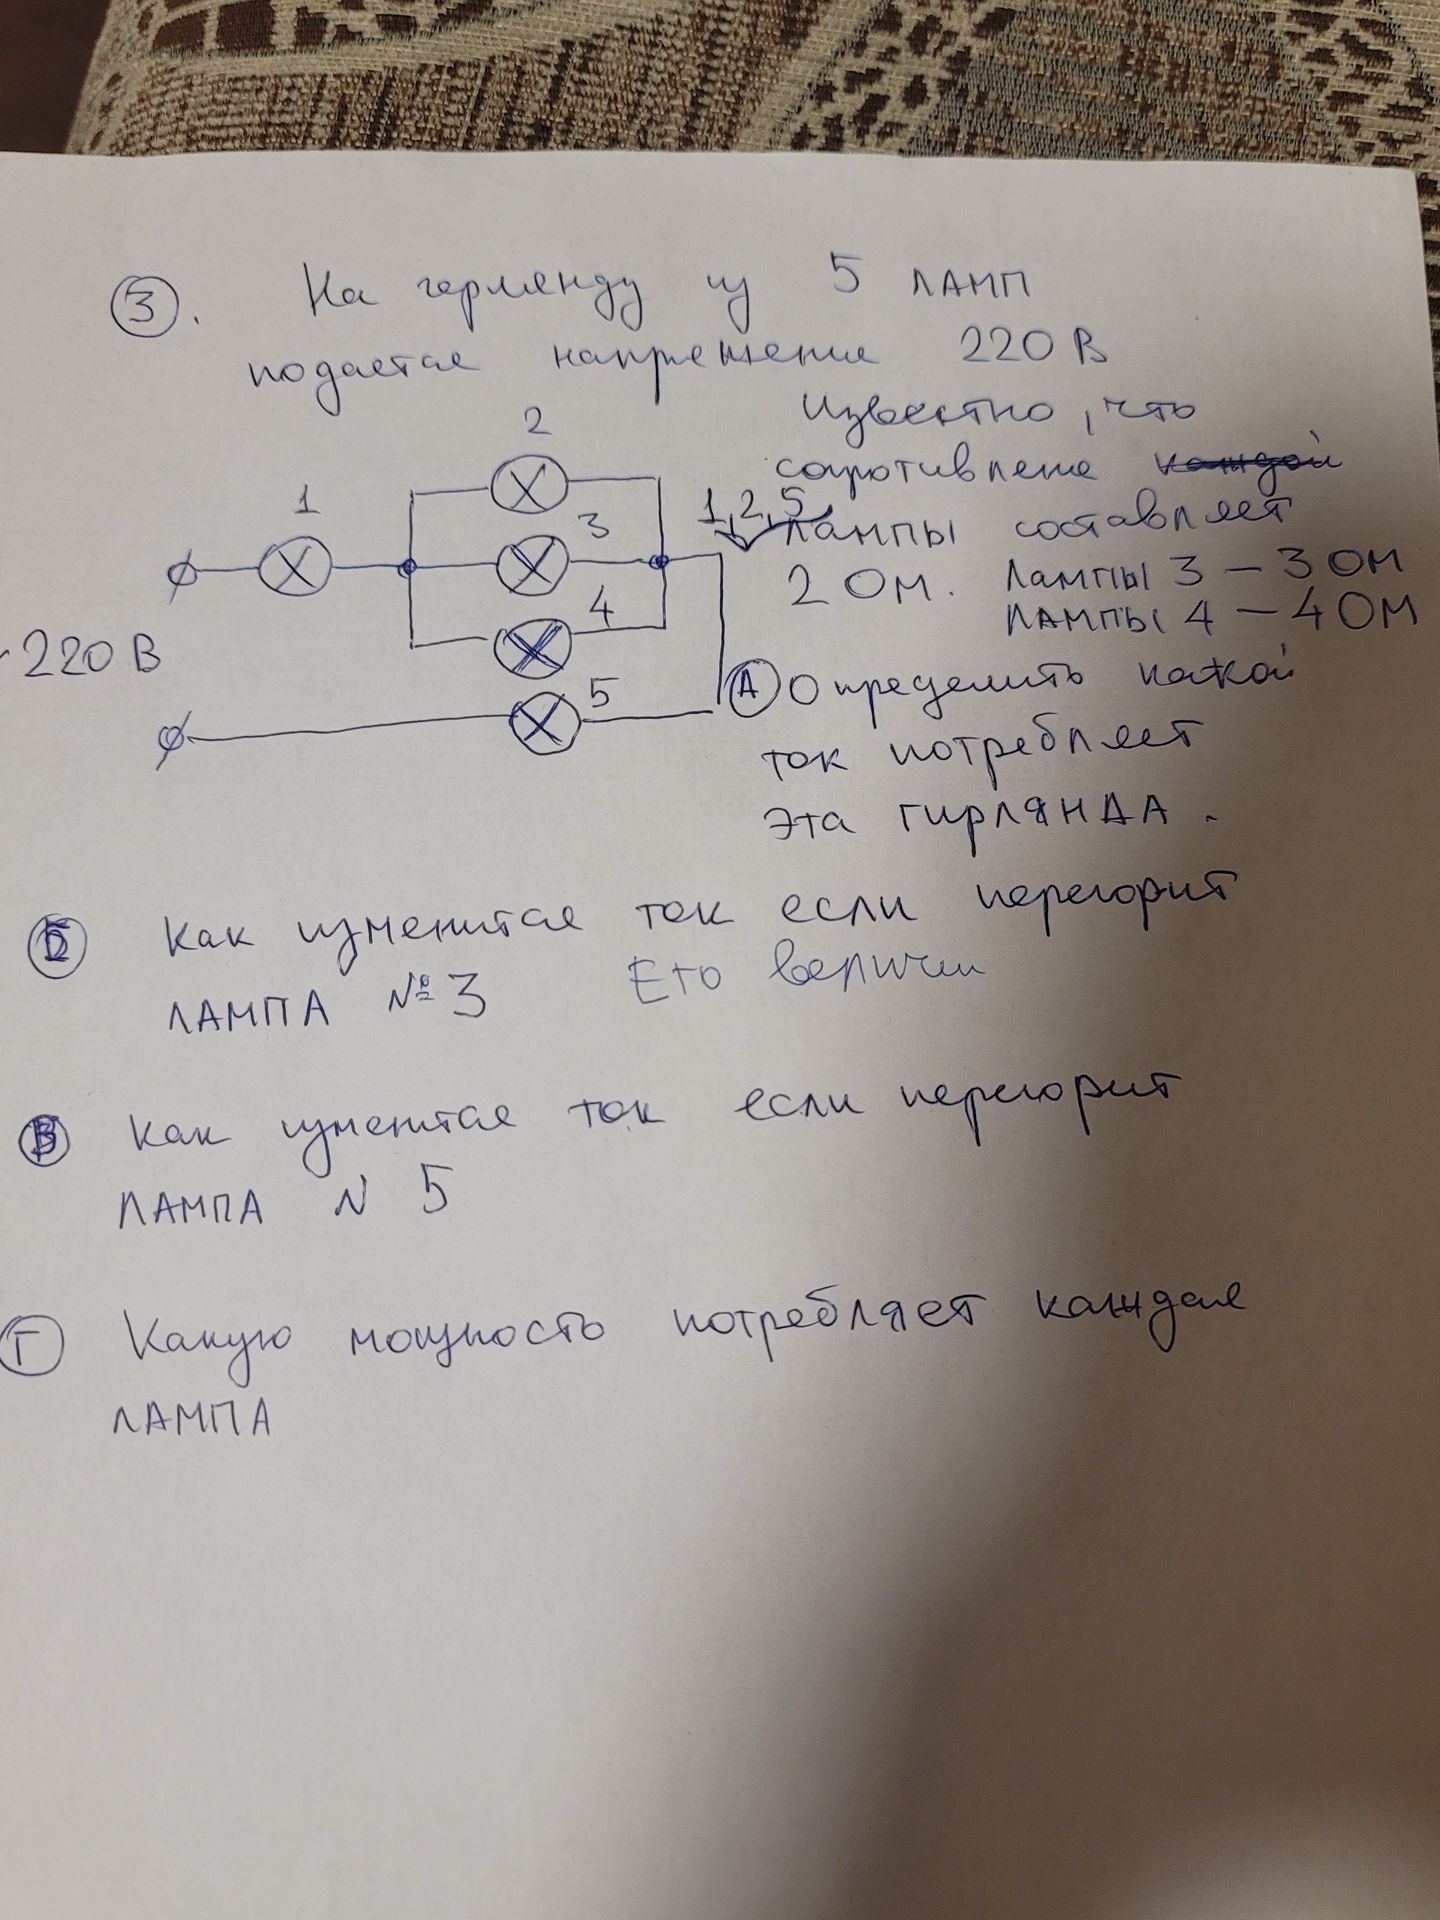 3. На герлянду из 5 ламп
подается напряжение 220 В
Известно, что
сопротивление каждой
1, 2, 5
лампы составляет
2 Ом. Лампы 3 – 3 Ом
Лампы 4 – 4 Ом
1
2
3
4
5
~220 В
А Определить какой
ток потребляет
эта гирлянда.
Б Как изменится ток если перегорит
лампа №3 Его величин
В Как изменится ток если перегорит
лампа N 5
Г Какую мощность потребляет каждая
лампа